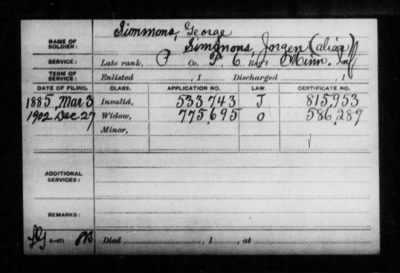 Simmons, George
NAME OF SOLDIER: Simmons, Jorgen (alias)
SERVICE: Late rank, P Co. F, 6 Reg't Minn. Inf
TERM OF SERVICE: Enlisted , 1 Discharged , 1
DATE OF FILING. CLASS. APPLICATION NO. LAW. CERTIFICATE NO.
1885, Mar 3 Invalid, 533,743 J 815,953
1902 Dec 27 Widow, 775,695 O 586,289
Minor,
ADDITIONAL SERVICES:
REMARKS:
Died , 1 , at